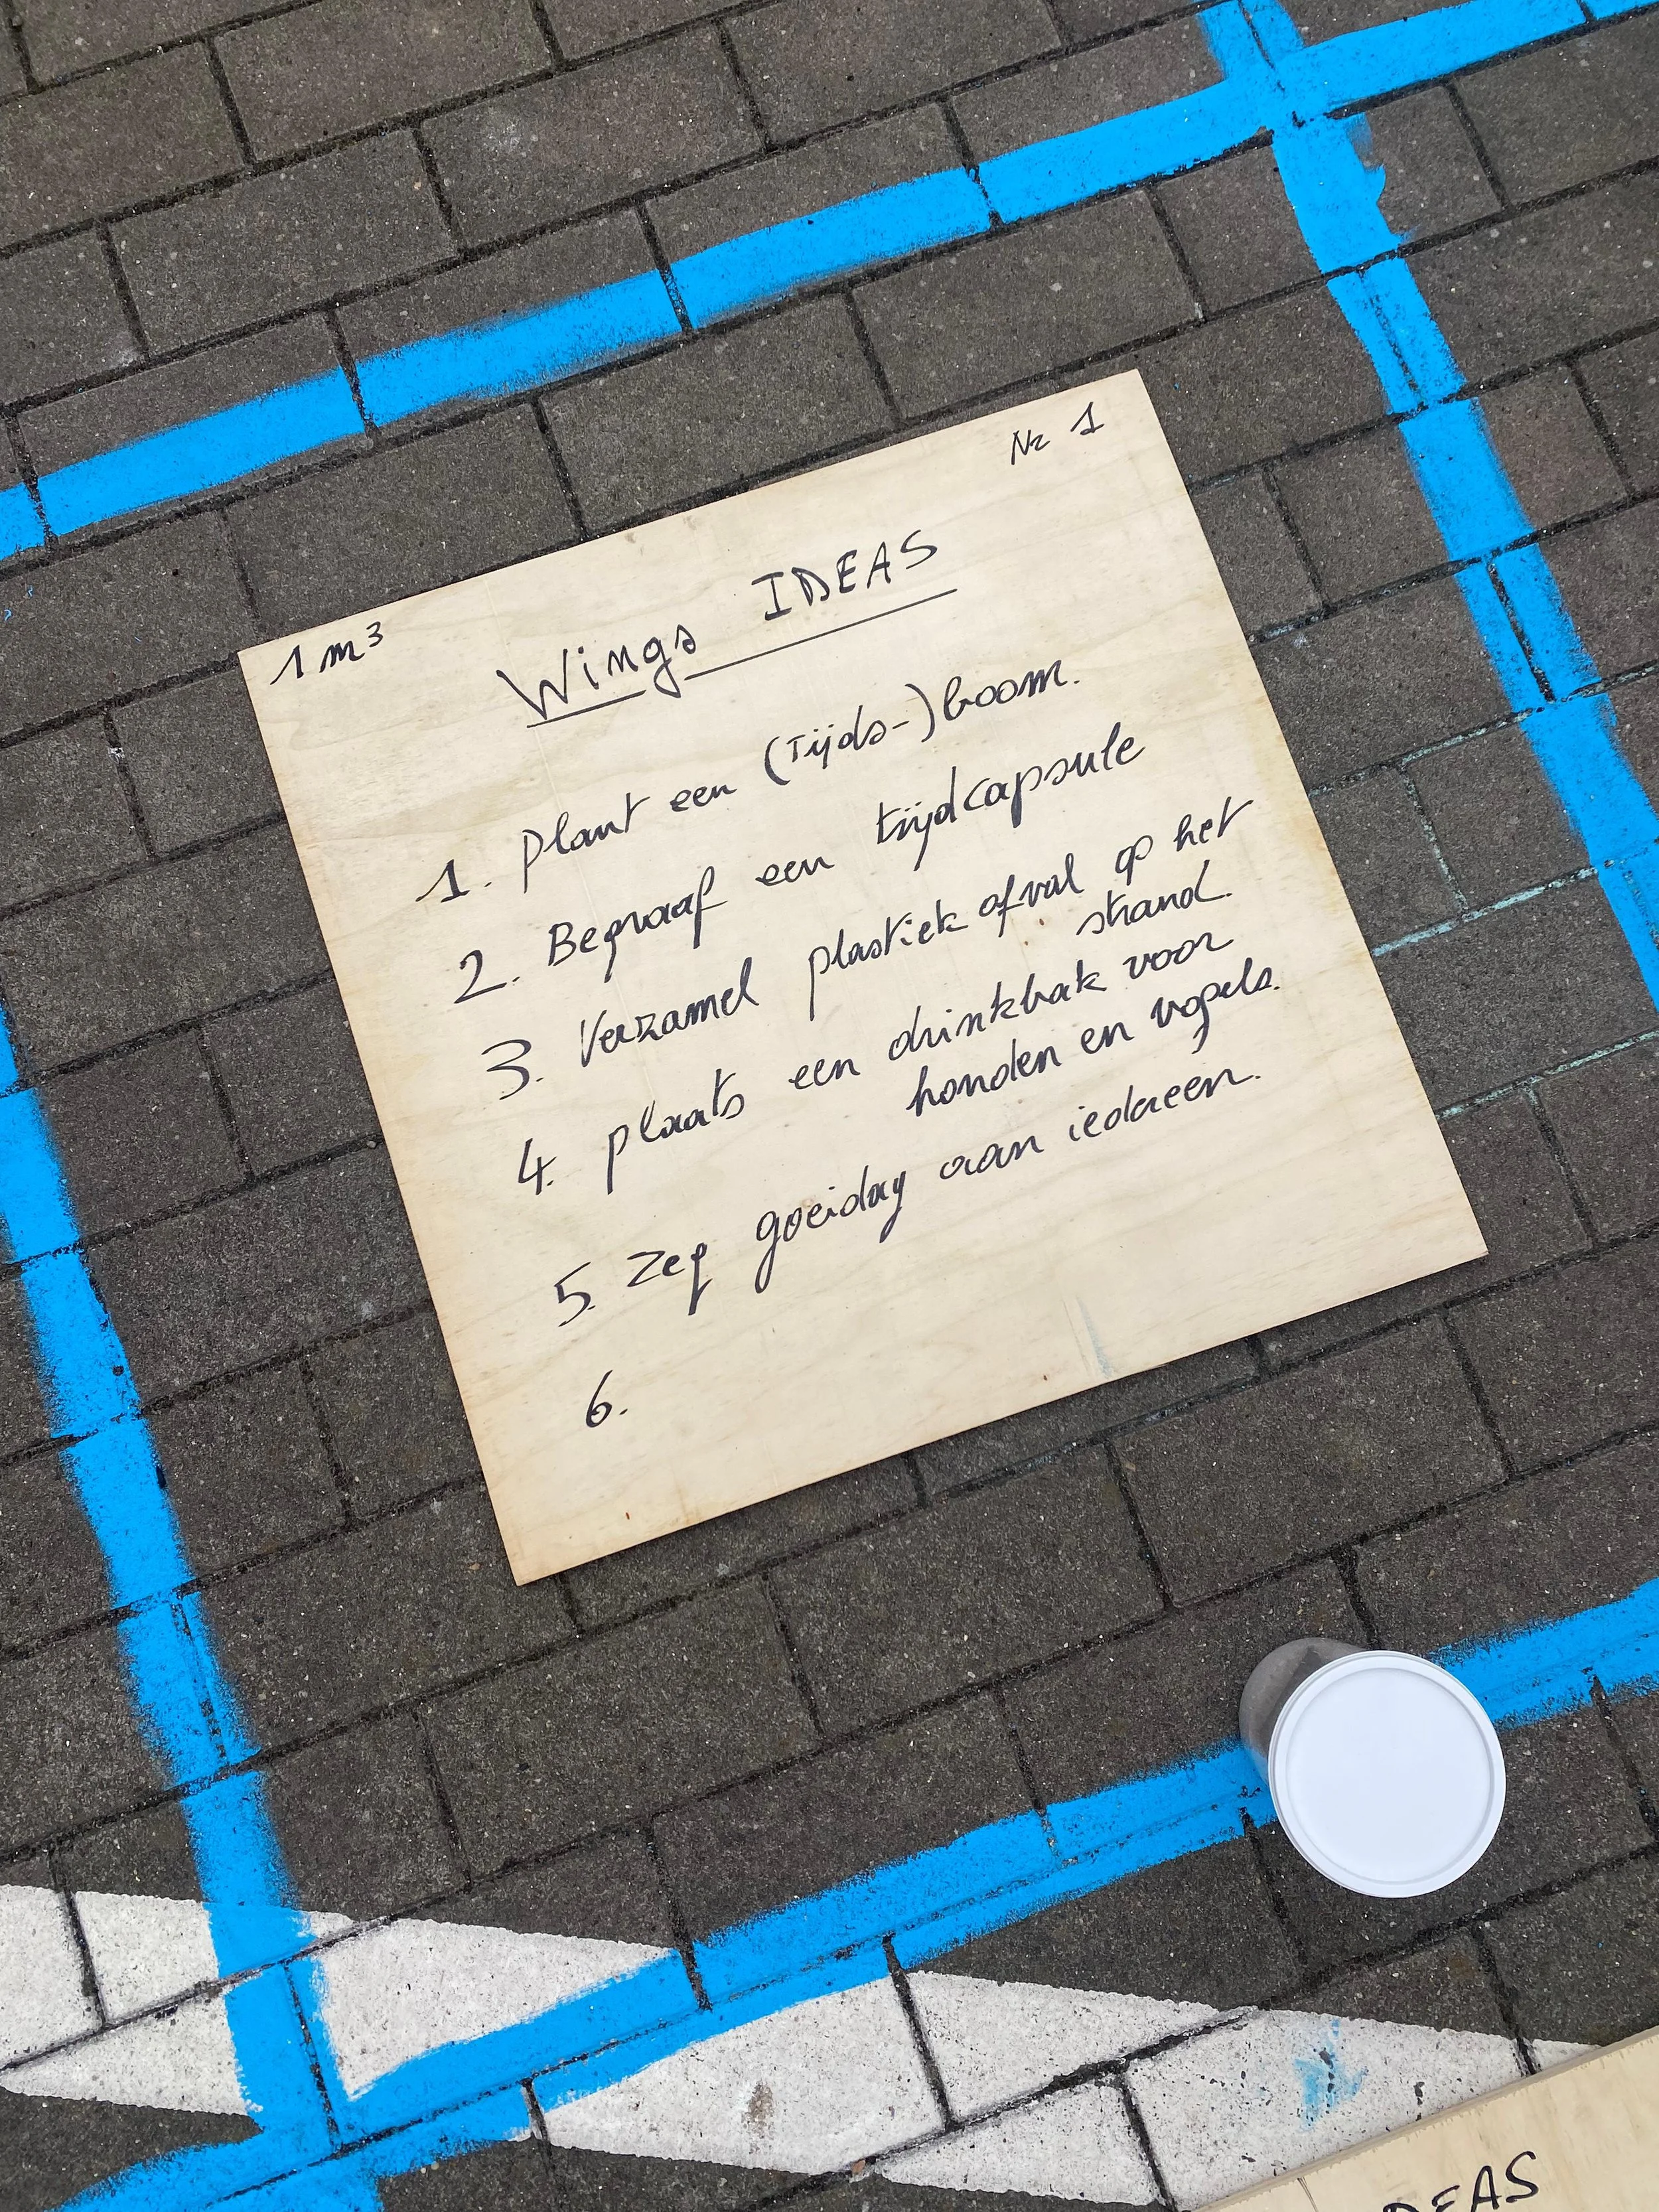 Nr 1
1 m³
Wings IDEAS
1. plant een (Tijds-) boom.
2. Begraaf een tijdcapsule
3. Verzamel plastiek afval op het
strand.
4. plaats een drinkbak voor
honden en vogels.
5. Zeg goeiday aan iedereen.
6.
DEAS